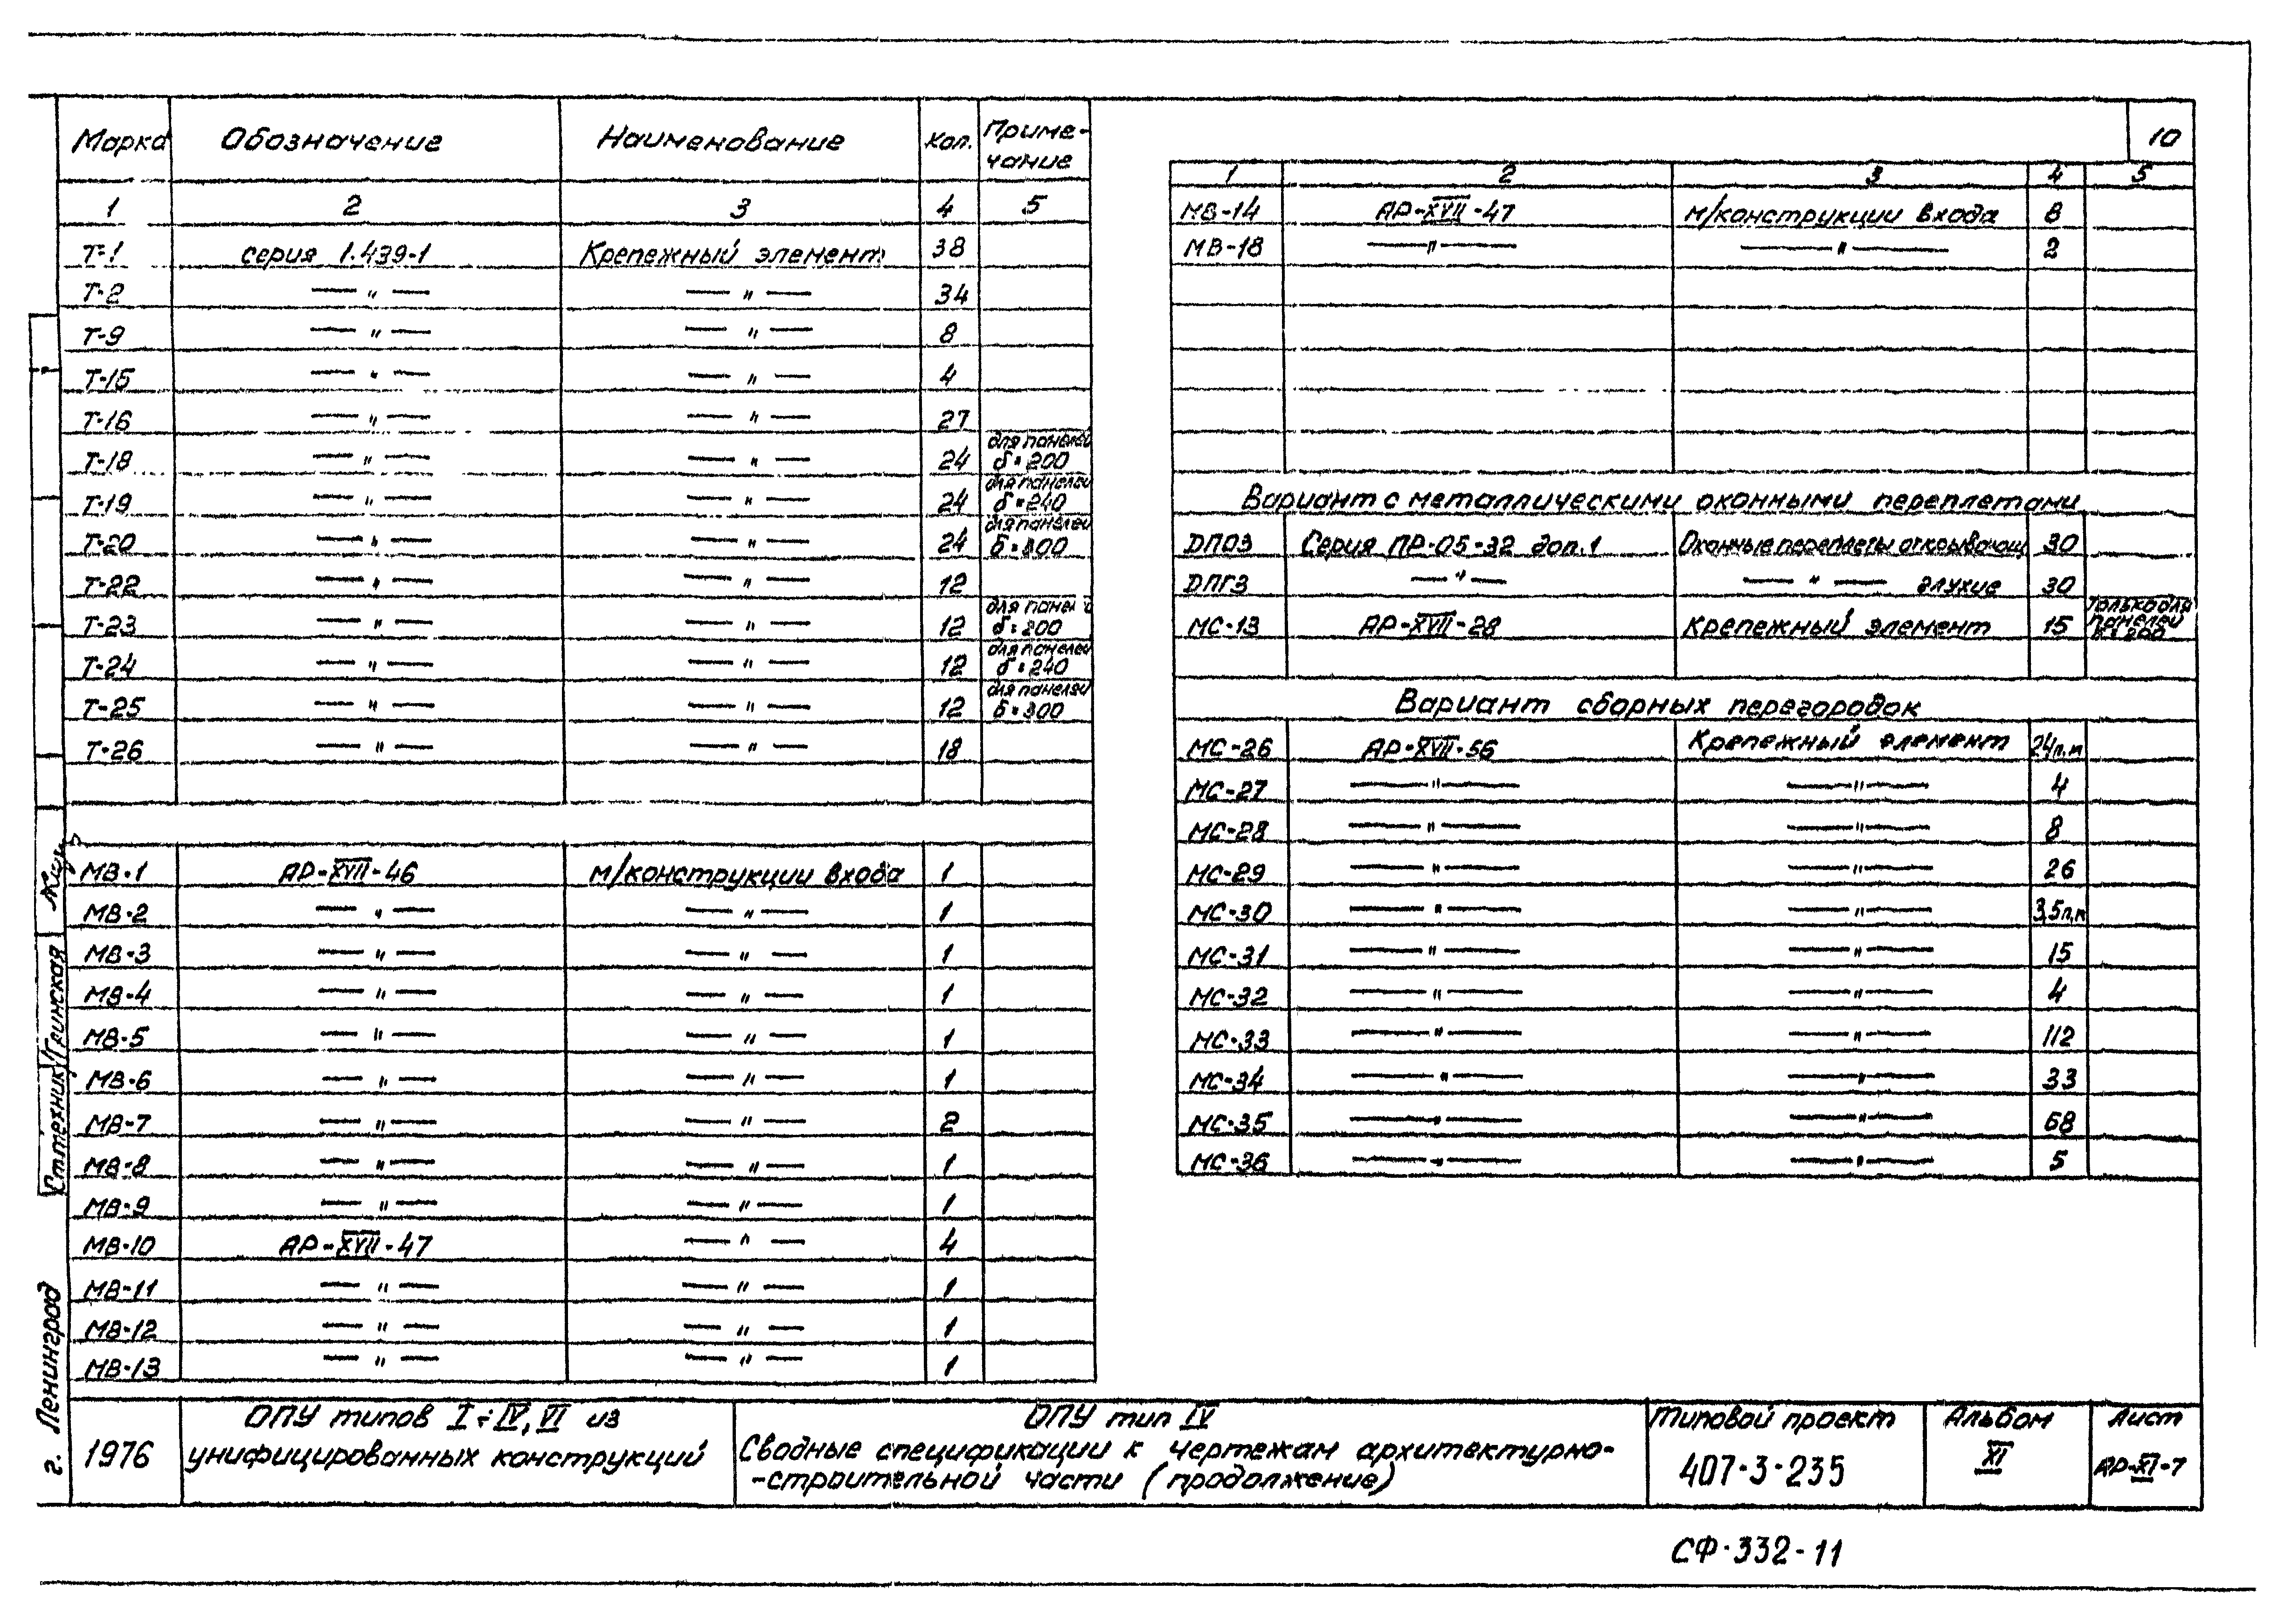 Марка Обозначение Наименование Кол. Приме-
чание
1 2 3 4 5
Т-1 серия 1.439-1 Крепежный элемент 38
Т-2 — " — — " — 34
Т-9 — " — — " — 8
Т-15 — " — — " — 4
Т-16 — " — — " — 27
Т-18 — " — — " — 24 для панелей δ=200
Т-19 — " — — " — 24 для панелей δ=240
Т-20 — " — — " — 24 для панелей δ=300
Т-22 — " — — " — 12
Т-23 — " — — " — 12 для панелей δ=200
Т-24 — " — — " — 12 для панелей δ=240
Т-25 — " — — " — 12 для панелей δ=300
Т-26 — " — — " — 18
МВ-1 АР-XVII-46 м/конструкции входа 1
МВ-2 — " — — " — 1
МВ-3 — " — — " — 1
МВ-4 — " — — " — 1
МВ-5 — " — — " — 1
МВ-6 — " — — " — 1
МВ-7 — " — — " — 2
МВ-8 — " — — " — 1
МВ-9 — " — — " — 1
МВ-10 АР-XVII-47 — " — 4
МВ-11 — " — — " — 1
МВ-12 — " — — " — 1
МВ-13 — " — — " — 1
10
1 2 3 4 5
МВ-14 АР-XVII-47 м/конструкции входа 8
МВ-18 — " — — " — 2
Вариант с металлическими оконными переплетами
ДПОЗ Серия ПР-05-32 доп.1 Оконные переплеты открывающ 30
ДПГЗ — " — — " — глухие 30
МС-13 АР-XVII-28 Крепежный элемент 15 только для
панелей
200
Вариант сборных перегородок
МС-26 АР-XVII-56 Крепежный элемент 24п.м
МС-27 — " — — " — 4
МС-28 — " — — " — 8
МС-29 — " — — " — 26
МС-30 — " — — " — 3,5п.м
МС-31 — " — — " — 15
МС-32 — " — — " — 4
МС-33 — " — — " — 112
МС-34 — " — — " — 33
МС-35 — " — — " — 68
МС-36 — " — — " — 5
Ст.техник Гринская
г. Ленинград
1976
ОПУ типов I÷IV, VI из
унифицированных конструкций
ОПУ тип IV
Сводные спецификации к чертежам архитектурно-
-строительной части (продолжение)
Типовой проект
407-3-235
Альбом
XI
Лист
АР-XI-7
СФ-332-11